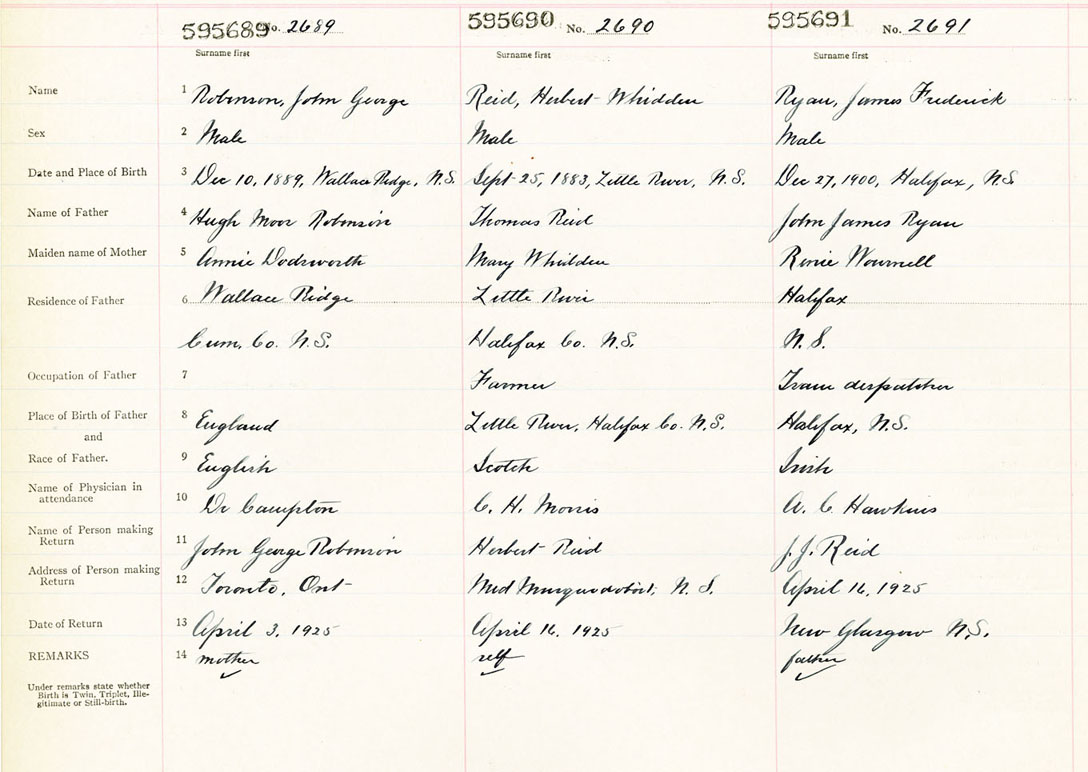 595689 No. 2689 595690 No. 2690 595691 No. 2691
Surname first Surname first Surname first
Name 1 Robinson, John George Reid, Herbert Whidden Ryan, James Frederick
Sex 2 Male Male Male
Date and Place of Birth 3 Dec 10, 1889, Wallace Ridge, N.S. Sept 25, 1883, Little River, N.S. Dec 27, 1900, Halifax, N.S.
Name of Father 4 Hugh Moor Robinson Thomas Reid John James Ryan
Maiden name of Mother 5 Annie Dodsworth Mary Whidden Renie Wournell
Residence of Father 6 Wallace Ridge Little River Halifax
Cum. Co. N.S. Halifax Co. N.S. N.S.
Occupation of Father 7 Farmer Tram despatcher
Place of Birth of Father 8 England Little River, Halifax Co. N.S. Halifax, N.S.
and
Race of Father. 9 English Scotch Irish
Name of Physician in
attendance 10 Dr Campton C. H. Morris A. C. Hawkins
Name of Person making
Return 11 John George Robinson Herbert Reid J. J. Reid
Address of Person making
Return 12 Toronto, Ont Mid Musquodoboit, N.S. April 16, 1925
Date of Return 13 April 3, 1925 April 16, 1925 New Glasgow N.S.
REMARKS 14 mother self father
Under remarks state whether
Birth is Twin, Triplet, Ille-
gitimate or Still-birth.